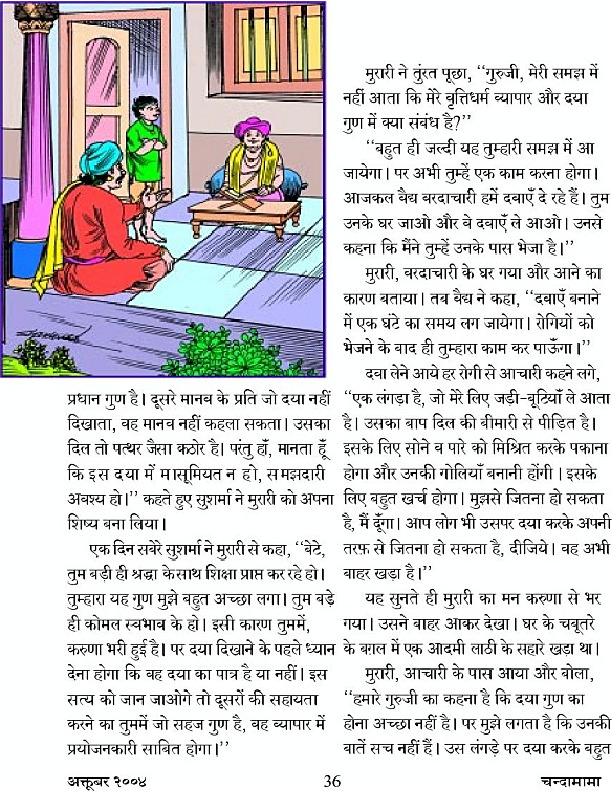 प्रधान गुण है। दूसरे मानव के प्रति जो दया नहीं
दिखाता, वह मानव नहीं कहला सकता। उसका
दिल तो पत्थर जैसा कठोर है। परंतु हाँ, मानता हूँ
कि इस दया में मासूमियत न हो, समझदारी
अवश्य हो।’’ कहते हुए सुशर्मा ने मुरारी को अपना
शिष्य बना लिया।
एक दिन सबेरे सुशर्मा ने मुरारी से कहा, ‘‘बेटे,
तुम बड़ी ही श्रद्धा केसाथ शिक्षा प्राप्त कर रहे हो।
तुम्हारा यह गुण मुझे बहुत अच्छा लगा। तुम बड़े
ही कोमल स्वभाव के हो। इसी कारण तुममें,
करुणा भरी हुई है। पर दया दिखाने के पहले ध्यान
देना होगा कि वह दया का पात्र है या नहीं। इस
सत्य को जान जाओगे तो दूसरों की सहायता
करने का तुममें जो सहज गुण है, वह व्यापार में
प्रयोजनकारी साबित होगा।’’
मुरारी ने तुंरत पूछा, ‘‘गुरुजी, मेरी समझ में
नहीं आता कि मेरे वृत्तिधर्म व्यापार और दया
गुण में क्या संबंध है?’’
‘‘बहुत ही जल्दी यह तुम्हारी समझ में आ
जायेगा। पर अभी तुम्हें एक काम करना होगा।
आजकल वैद्य वरदाचारी हमें दवाएँ दे रहे हैं। तुम
उनके घर जाओ और वे दवाएँ ले आओ। उनसे
कहना कि मैंने तुम्हें उनके पास भेजा है।’’
मुरारी, वरदाचारी के घर गया और आने का
कारण बताया। तब वैद्य ने कहा, ‘‘दवाएँ बनाने
में एक घंटे का समय लग जायेगा। रोगियों को
भेजने के बाद ही तुम्हारा काम कर पाऊँगा।’’
दवा लेने आये हर रोगी से आचारी कहने लगे,
‘‘एक लंगड़ा है, जो मेरे लिए जड़ी-बूटियाँ ले आता
है। उसका बाप दिल की बीमारी से पीड़ित है।
इसके लिए सोने व पारे को मिश्रित करके पकाना
होगा और उनकी गोलियाँ बनानी होंगी। इसके
लिए बहुत खर्च होगा। मुझसे जितना हो सकता
है, मैं दूँगा। आप लोग भी उसपर दया करके अपनी
तरफ़ से जितना हो सकता है, दीजिये। वह अभी
बाहर खड़ा है।’’
यह सुनते ही मुरारी का मन करुणा से भर
गया। उसने बाहर आकर देखा। घर के चबूतरे
के बग़ल में एक आदमी लाठी के सहारे खड़ा था।
मुरारी, आचारी के पास आया और बोला,
‘‘हमारे गुरुजी का कहना है कि दया गुण का
होना अच्छा नहीं है। पर मुझे लगता है कि उनकी
बातें सच नहीं हैं। उस लंगड़े पर दया करके बहुत
अक्तूबर २००४
36
चन्दामामा